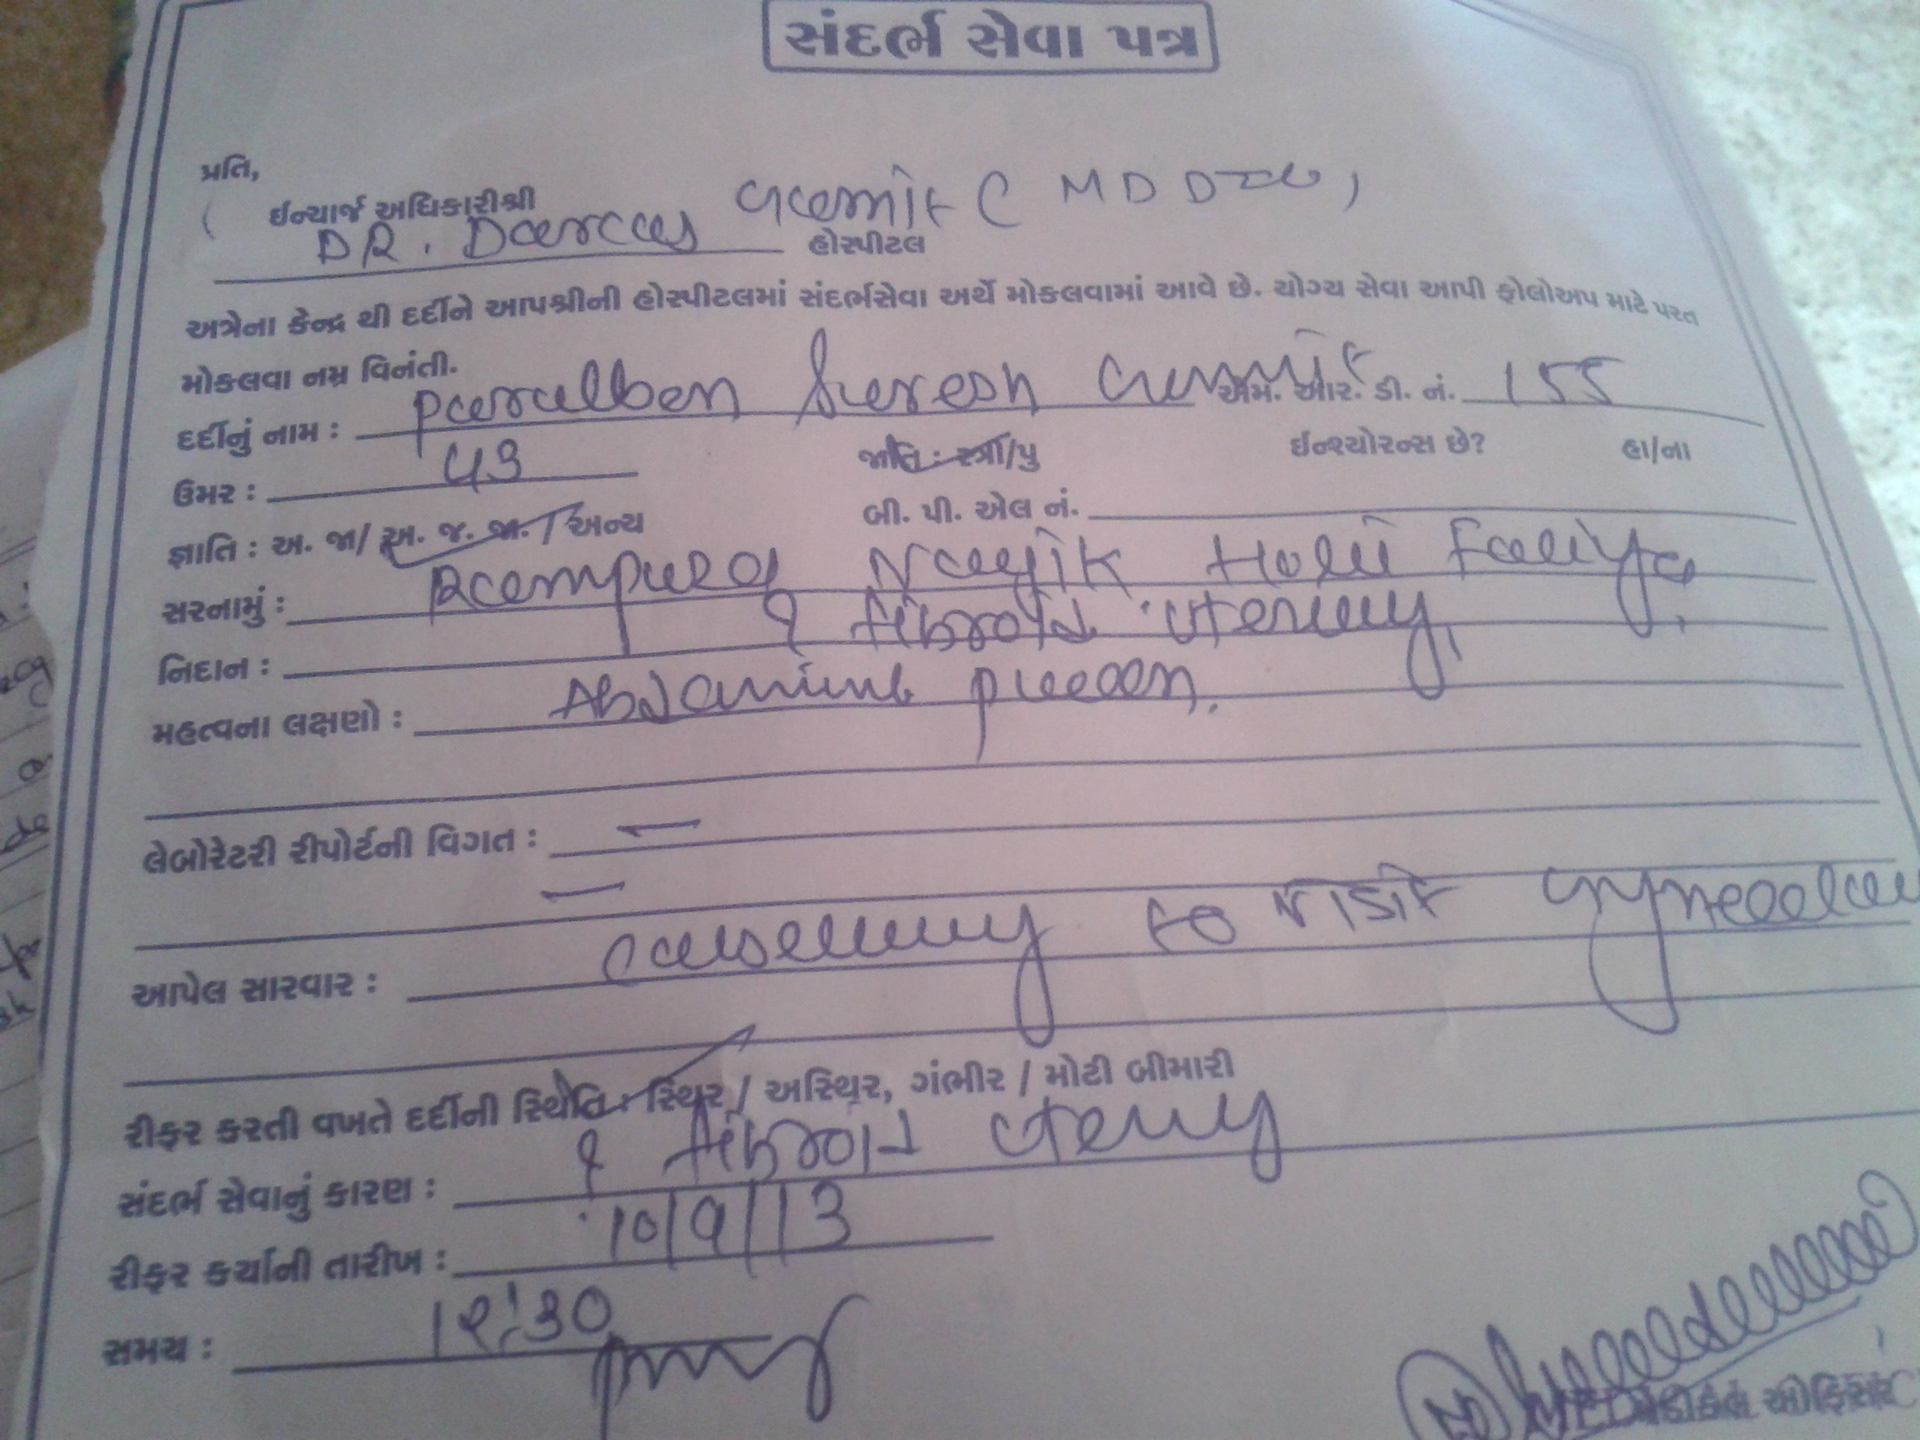 સંદર્ભ સેવા પત્ર
પ્રતિ,
ઈન્ચાર્જ અધિકારીશ્રી
DR. હોસ્પીટલ
અત્રેના કેન્દ્ર થી દર્દીને આપશ્રીની હોસ્પીટલમાં સંદર્ભસેવા અર્થે મોકલવામાં આવે છે. યોગ્ય સેવા આપી ફોલોઅપ માટે પરત
મોકલવા નમ્ર વિનંતી.
દર્દીનું નામ : Parulben Suresh એમ. આર. ડી. નં. 155
ઉંમર : 43 જાતિ : સ્ત્રી/પુ ઈન્શ્યોરન્સ છે? હા/ના
જ્ઞાતિ : અ. જા/ અ. જ. જા. / અન્ય બી. પી. એલ નં.
સરનામું : Rampura Nayik Holi Faliya
નિદાન : ? fibroid uterus,
મહત્વના લક્ષણો :
લેબોરેટરી રીપોર્ટની વિગત : —
—
આપેલ સારવાર : to visit
રીફર કરતી વખતે દર્દીની સ્થિતિ : સ્થિર / અસ્થિર, ગંભીર / મોટી બીમારી
સંદર્ભ સેવાનું કારણ : ? fibroid uterus
રીફર કર્યાની તારીખ : 10/9/13
સમય : 12:30
મેડીકલ ઓફિસર